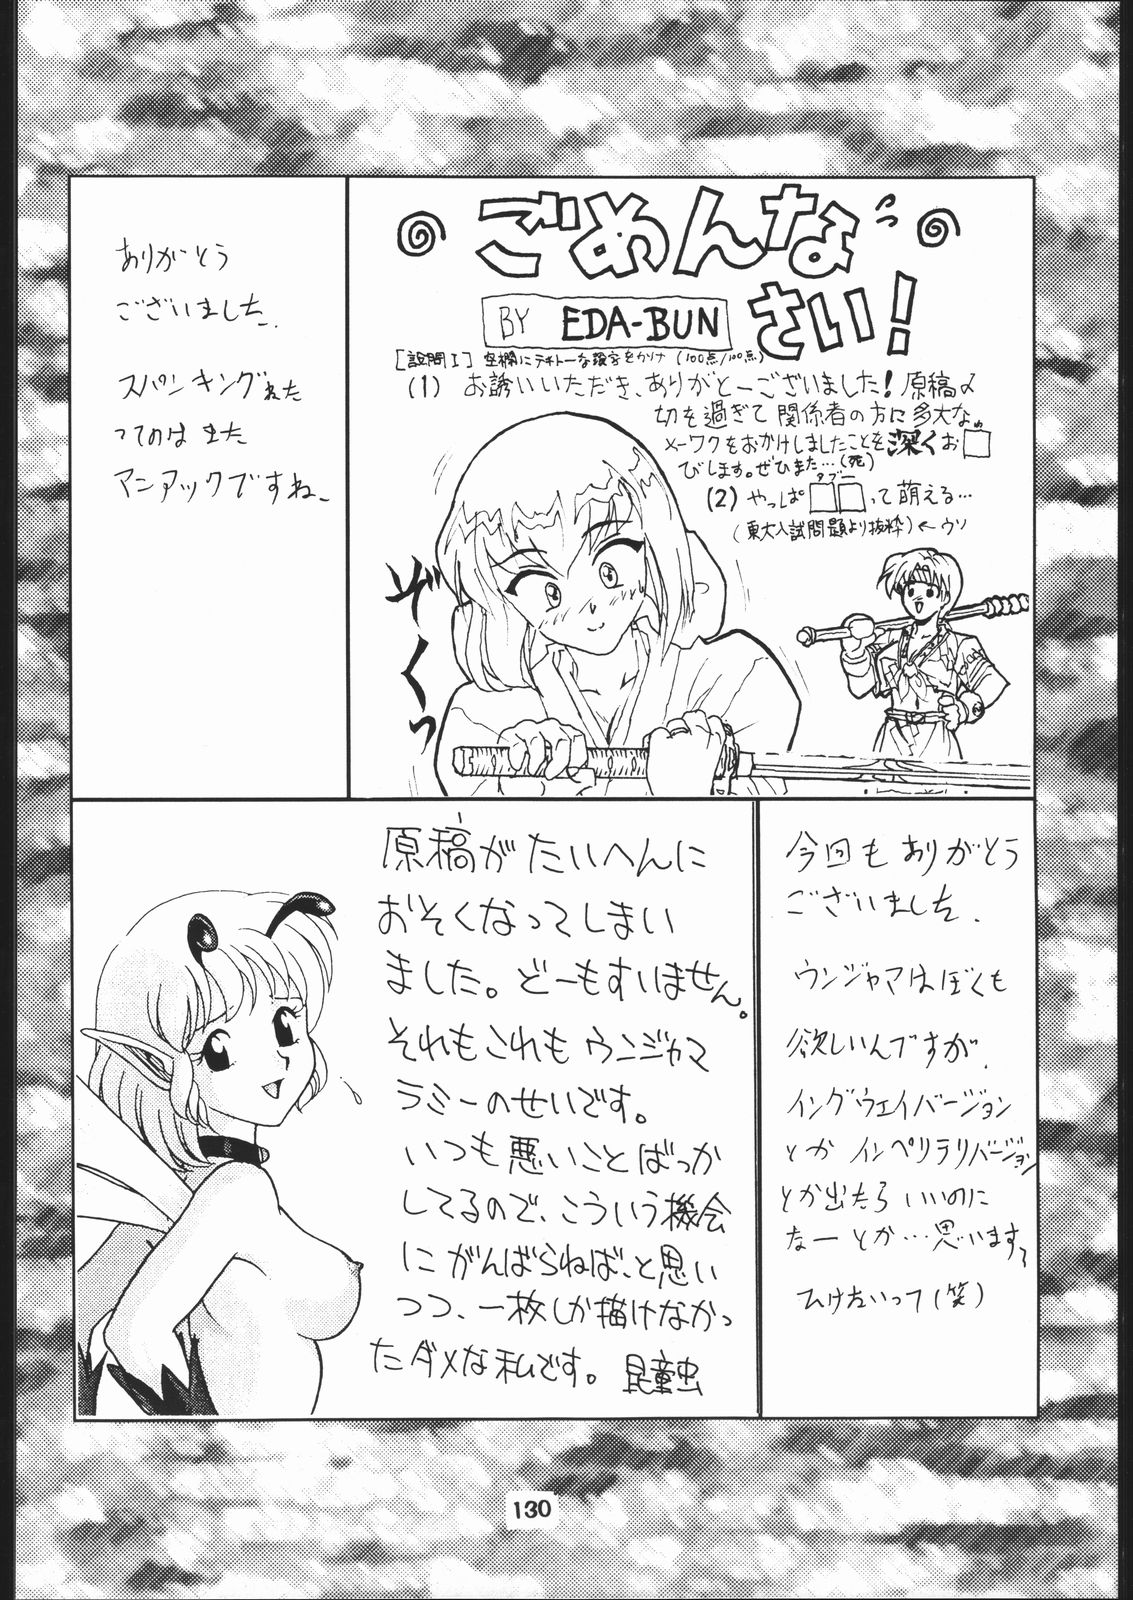 ごめんな
さい!
BY EDA-BUN
[設問I] 空欄にテキトーな漢字をかけ (100点/100点)
(1) お誘いいただき、ありがとーございました!原稿〆
切を過ぎて関係者の方に多大な
メーワクをおかけしましたことを深くお□
びします。ぜひまた…(死)
タブー
(2) やっぱ□□って萌える…
(東大入試問題より抜粋)←ウソ
ぞくっ
ありがとう
ございました。
スパンキングねた
ってのはまた
マニアックですね。
原稿がたいへんに
おそくなってしまい
ました。どーもすいません。
それもこれもウンジャマ
ラミーのせいです。
いつも悪いことばっか
してるので、こういう機会
にがんばらねば、と思い
つつ、一枚しか描けなかっ
たダメな私です。 昆童虫
今回もありがとう
ございました。
ウンジャマはぼくも
欲しいんですが、
イングウェイバージョン
とかインペリテリバージョン
とか出たらいいのに
なーとか…思います。
ひけないって(笑)
130